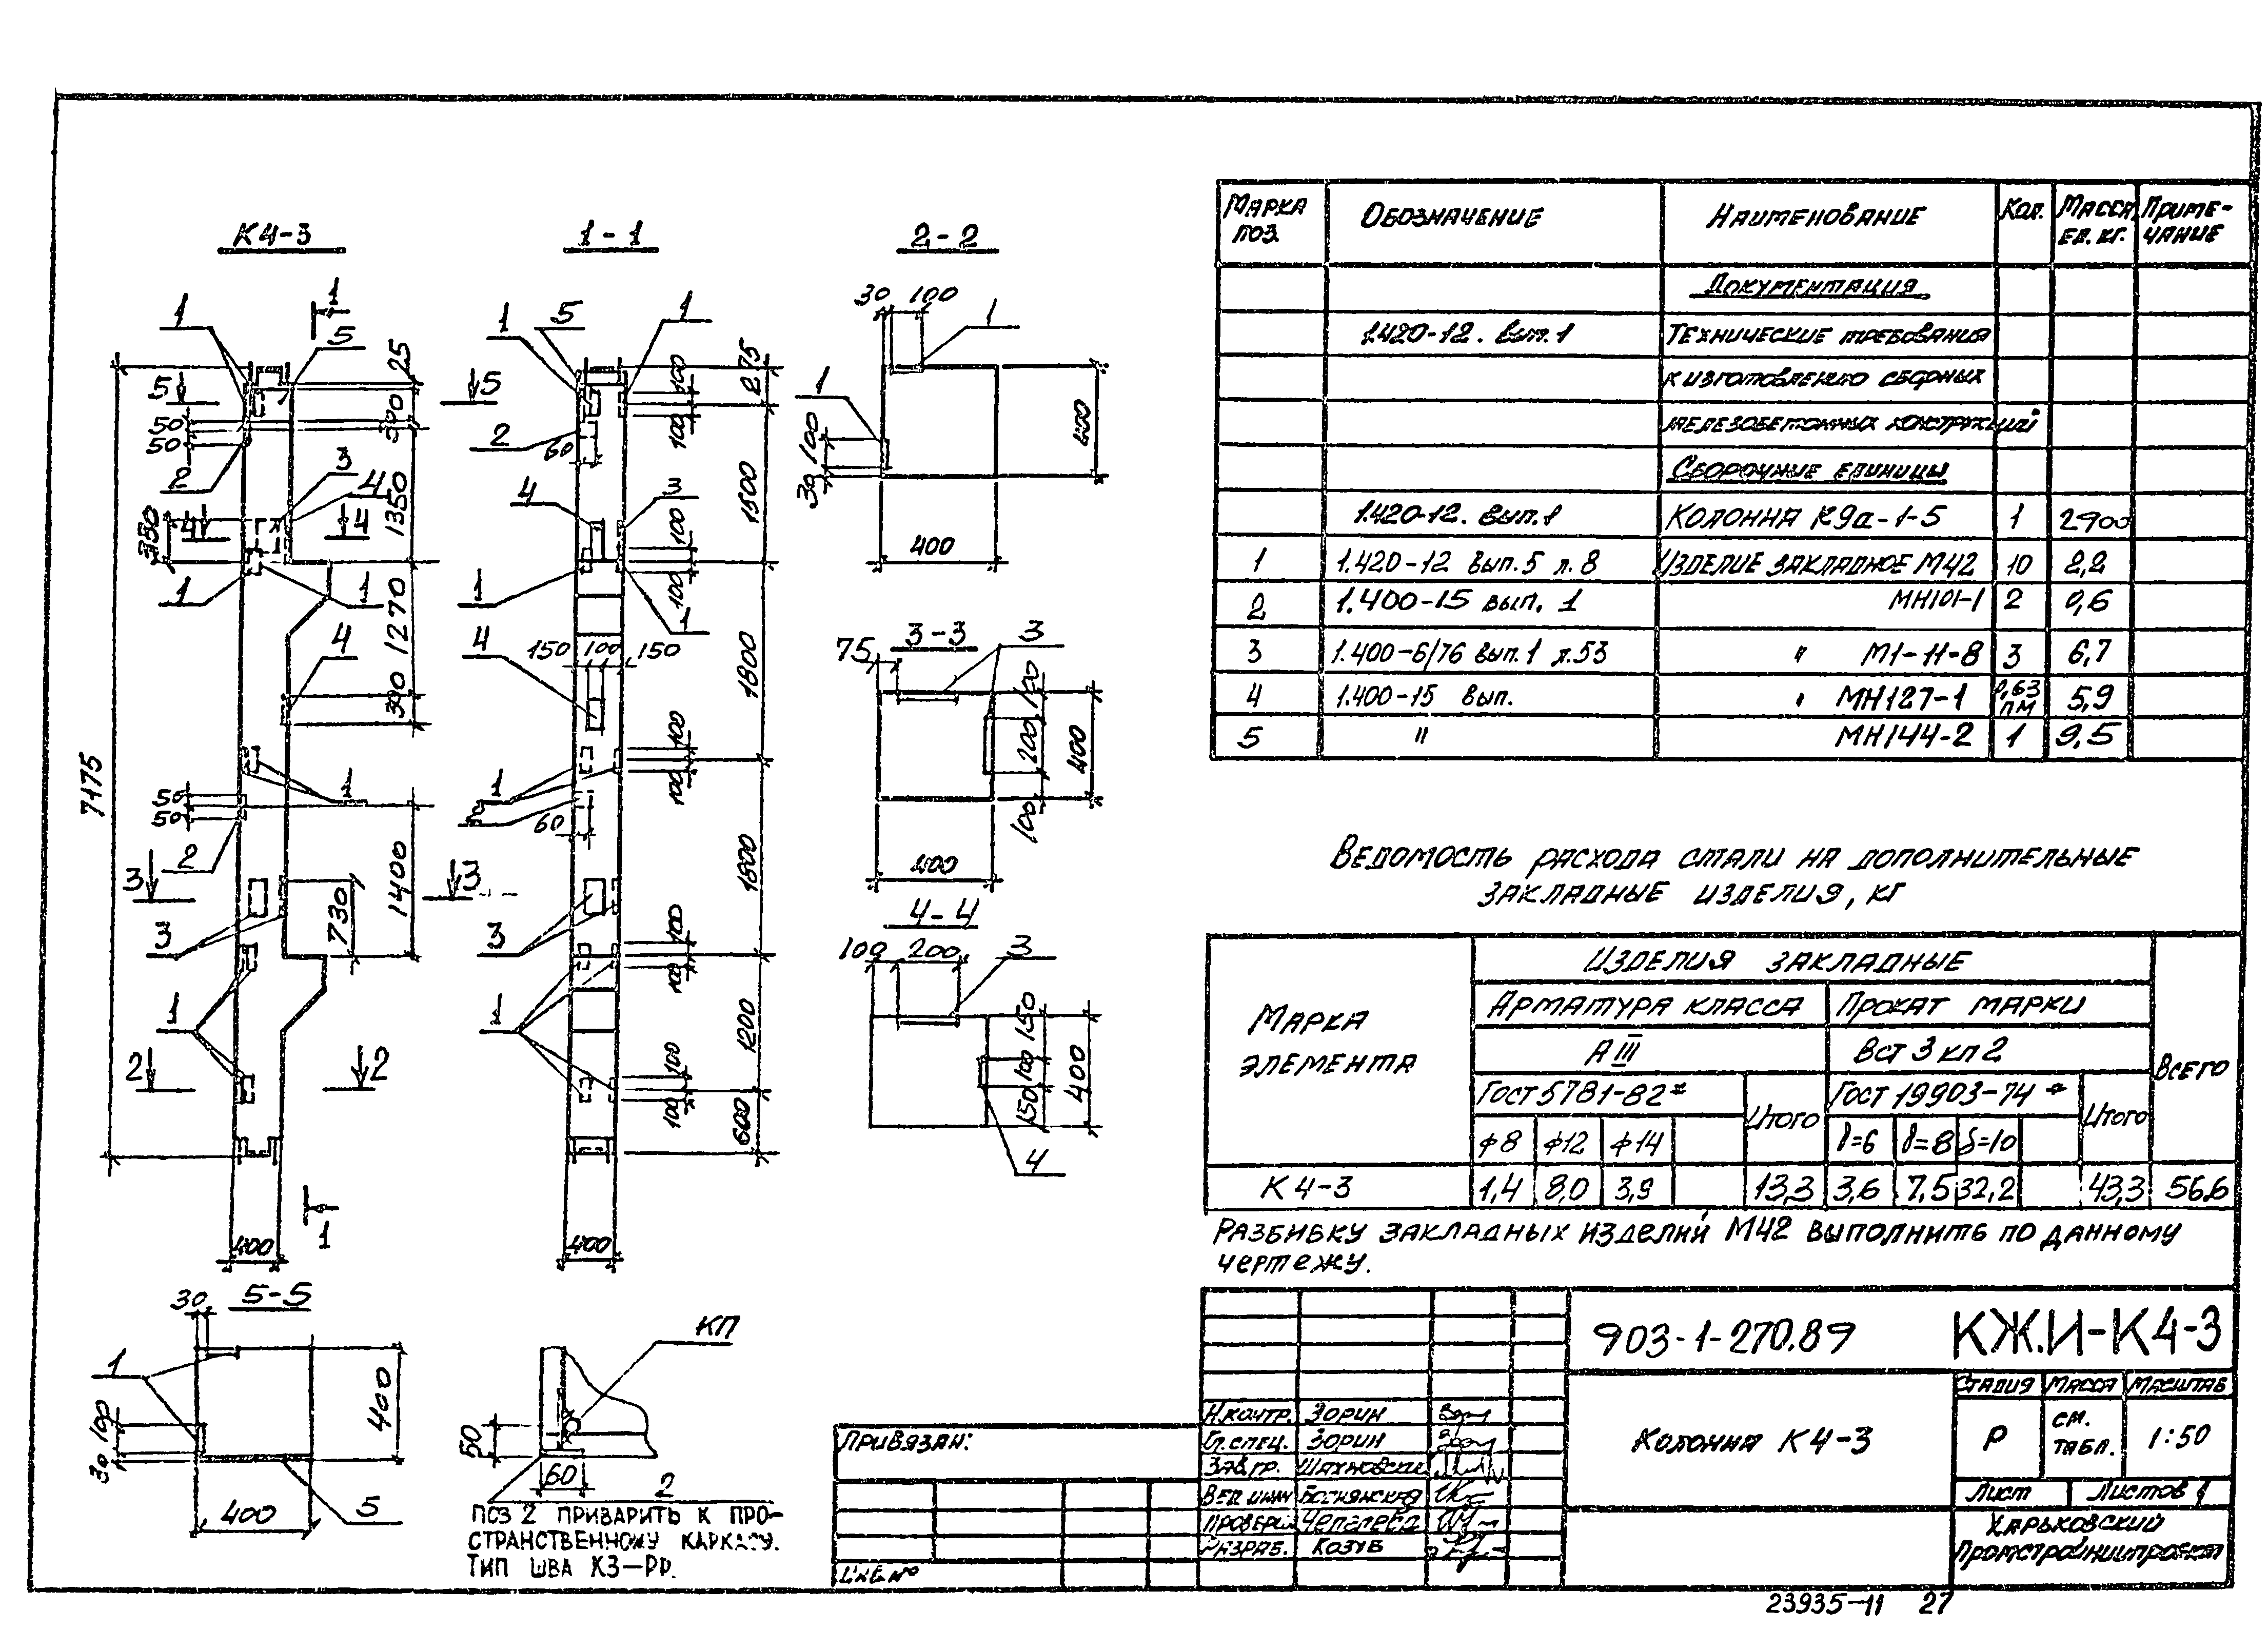 К4-3
1-1
2-2
1
1
5
25
5
5
50
50
380
2
3
4
350
4
4
1350
1
1
1270
4
390
7175
50
50
1
2
3
3
1400
730
3
1
2
2
1
400
1
5
1
275
100
100
2
60
4
3
1500
100
100
1
1
150
100
150
4
1800
100
100
1
2
60
1800
3
100
100
1
1200
100
100
600
400
30
100
1
1
100
30
400
400
3-3
75
3
100
200
100
400
400
4-4
100
200
3
150
100
150
400
4
5-5
30
1
100
30
400
400
5
КП
50
60
2
ПОЗ 2 ПРИВАРИТЬ К ПРО-
СТРАНСТВЕННОМУ КАРКАСУ.
ТИП ШВА К3-РР.
МАРКА ПОЗ. ОБОЗНАЧЕНИЕ НАИМЕНОВАНИЕ КОЛ. МАССА ЕД. КГ. ПРИМЕ-ЧАНИЕ
ДОКУМЕНТАЦИЯ
1.420-12. ВЫП.1 ТЕХНИЧЕСКИЕ ТРЕБОВАНИЯ
К ИЗГОТОВЛЕНИЮ СБОРНЫХ
ЖЕЛЕЗОБЕТОННЫХ КОНСТРУКЦИЙ
СБОРОЧНЫЕ ЕДИНИЦЫ
1.420-12. ВЫП.1 КОЛОННА К9а-1-5 1 2900
1 1.420-12 ВЫП.5 Л.8 ИЗДЕЛИЕ ЗАКЛАДНОЕ М42 10 2,2
2 1.400-15 ВЫП. 1 МН101-1 2 0,6
3 1.400-6/76 ВЫП.1 Л.53 " М1-11-8 3 6,7
4 1.400-15 ВЫП. " МН127-1 0,63 ПМ 5,9
5 " МН144-2 1 9,5
ВЕДОМОСТЬ РАСХОДА СТАЛИ НА ДОПОЛНИТЕЛЬНЫЕ
ЗАКЛАДНЫЕ ИЗДЕЛИЯ, КГ
МАРКА ЭЛЕМЕНТА
ИЗДЕЛИЯ ЗАКЛАДНЫЕ
АРМАТУРА КЛАССА ПРОКАТ МАРКИ
А III ВСТ 3 КП 2
ВСЕГО
ГОСТ 5781-82* ИТОГО ГОСТ 19903-74* ИТОГО
ф8 ф12 ф14 δ=6 δ=8 δ=10
К 4-3 1,4 8,0 3,9 13,3 3,6 7,5 32,2 43,3 56,6
РАЗБИВКУ ЗАКЛАДНЫХ ИЗДЕЛИЙ М42 ВЫПОЛНИТЬ ПО ДАННОМУ
ЧЕРТЕЖУ.
903-1-270.89 КЖ.И-К4-3
СТАДИЯ МАССА МАСШТАБ
Н.КОНТР. ЗОРИН
ГЛ.СПЕЦ. ЗОРИН
ЗАВ.ГР.
ВЕД ИНЖ
ПРОВЕРИЛ ЧЕПЕЛЕВА
РАЗРАБ. КОЗУБ
КОЛОННА К4-3
Р СМ. ТАБЛ. 1:50
ЛИСТ ЛИСТОВ 1
ХАРЬКОВСКИЙ
ПРОМСТРОЙНИИПРОЕКТ
ПРИВЯЗАН:
ИНВ.№
23935-11 27